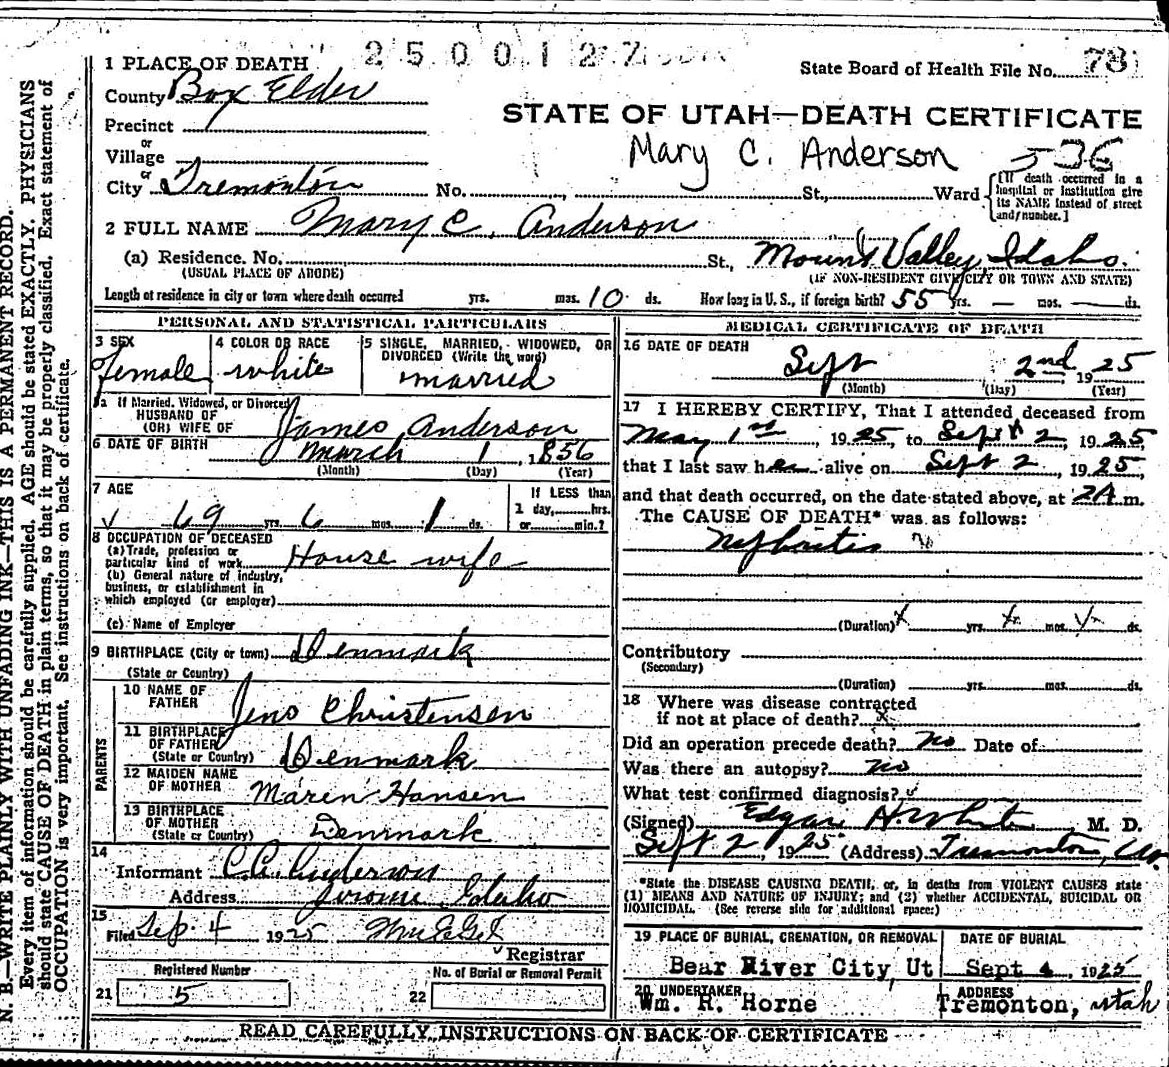 2500127
State Board of Health File No. 78
1 PLACE OF DEATH
County Box Elder
STATE OF UTAH—DEATH CERTIFICATE
Precinct
or
Village
Mary C. Anderson 536
or
City Tremonton No. St., Ward
[If death occurred in a hospital or institution give its NAME instead of street and number.]
2 FULL NAME Mary C. Anderson
(a) Residence. No. St., Mound Valley, Idaho.
(USUAL PLACE OF ABODE) (IF NON-RESIDENT GIVE CITY OR TOWN AND STATE)
Length of residence in city or town where death occurred yrs. mos. 10 ds. How long in U. S., if foreign birth? 55 yrs. — mos. — ds.
PERSONAL AND STATISTICAL PARTICULARS
3 SEX
Female
4 COLOR OR RACE
white
5 SINGLE, MARRIED, WIDOWED, OR
DIVORCED (Write the word)
married
5a If Married, Widowed, or Divorced
HUSBAND OF
(OR) WIFE OF James Anderson
6 DATE OF BIRTH March 1, 1856
(Month) (Day) (Year)
7 AGE
69 yrs. 6 mos. 1 ds.
If LESS than
1 day, hrs.
or min.?
8 OCCUPATION OF DECEASED
(a) Trade, profession or
particular kind of work House wife
(b) General nature of industry,
business, or establishment in
which employed (or employer)
(c) Name of Employer
9 BIRTHPLACE (City or town) Denmark
(State or Country)
PARENTS
10 NAME OF
FATHER Jens Christensen
11 BIRTHPLACE
OF FATHER
(State or Country) Denmark
12 MAIDEN NAME
OF MOTHER Maren Hansen
13 BIRTHPLACE
OF MOTHER
(State or Country) Denmark
14
Informant C. A. Anderson
Address Idaho
15
Filed Sep. 4 1925
Registrar
Registered Number
21 5
No. of Burial or Removal Permit
22
MEDICAL CERTIFICATE OF DEATH
16 DATE OF DEATH
Sept 2nd 1925
(Month) (Day) (Year)
17 I HEREBY CERTIFY, That I attended deceased from
May 1st, 1925, to Sept 2, 1925,
that I last saw her alive on Sept 2, 1925,
and that death occurred, on the date stated above, at 2A m.
The CAUSE OF DEATH* was as follows:
Nephritis
(Duration) x yrs. x mos. x ds.
Contributory
(Secondary)
(Duration) yrs. mos. ds.
18 Where was disease contracted
if not at place of death? x
Did an operation precede death? no Date of
Was there an autopsy? no
What test confirmed diagnosis?
(Signed) Edgar H White M. D.
Sept 2, 1925 (Address) Tremonton,
*State the DISEASE CAUSING DEATH, or, in deaths from VIOLENT CAUSES state
(1) MEANS AND NATURE OF INJURY; and (2) whether ACCIDENTAL, SUICIDAL OR
HOMICIDAL. (See reverse side for additional space.)
19 PLACE OF BURIAL, CREMATION, OR REMOVAL
Bear River City, Ut
DATE OF BURIAL
Sept 4, 1925
20 UNDERTAKER
Wm. H. Horne
ADDRESS
Tremonton, Utah
READ CAREFULLY INSTRUCTIONS ON BACK OF CERTIFICATE
N. B.—WRITE PLAINLY WITH UNFADING INK—THIS IS A PERMANENT RECORD.
Every item of information should be carefully supplied. AGE should be stated EXACTLY. PHYSICIANS
should state CAUSE OF DEATH in plain terms, so that it may be properly classified. Exact statement of
OCCUPATION is very important. See instructions on back of certificate.